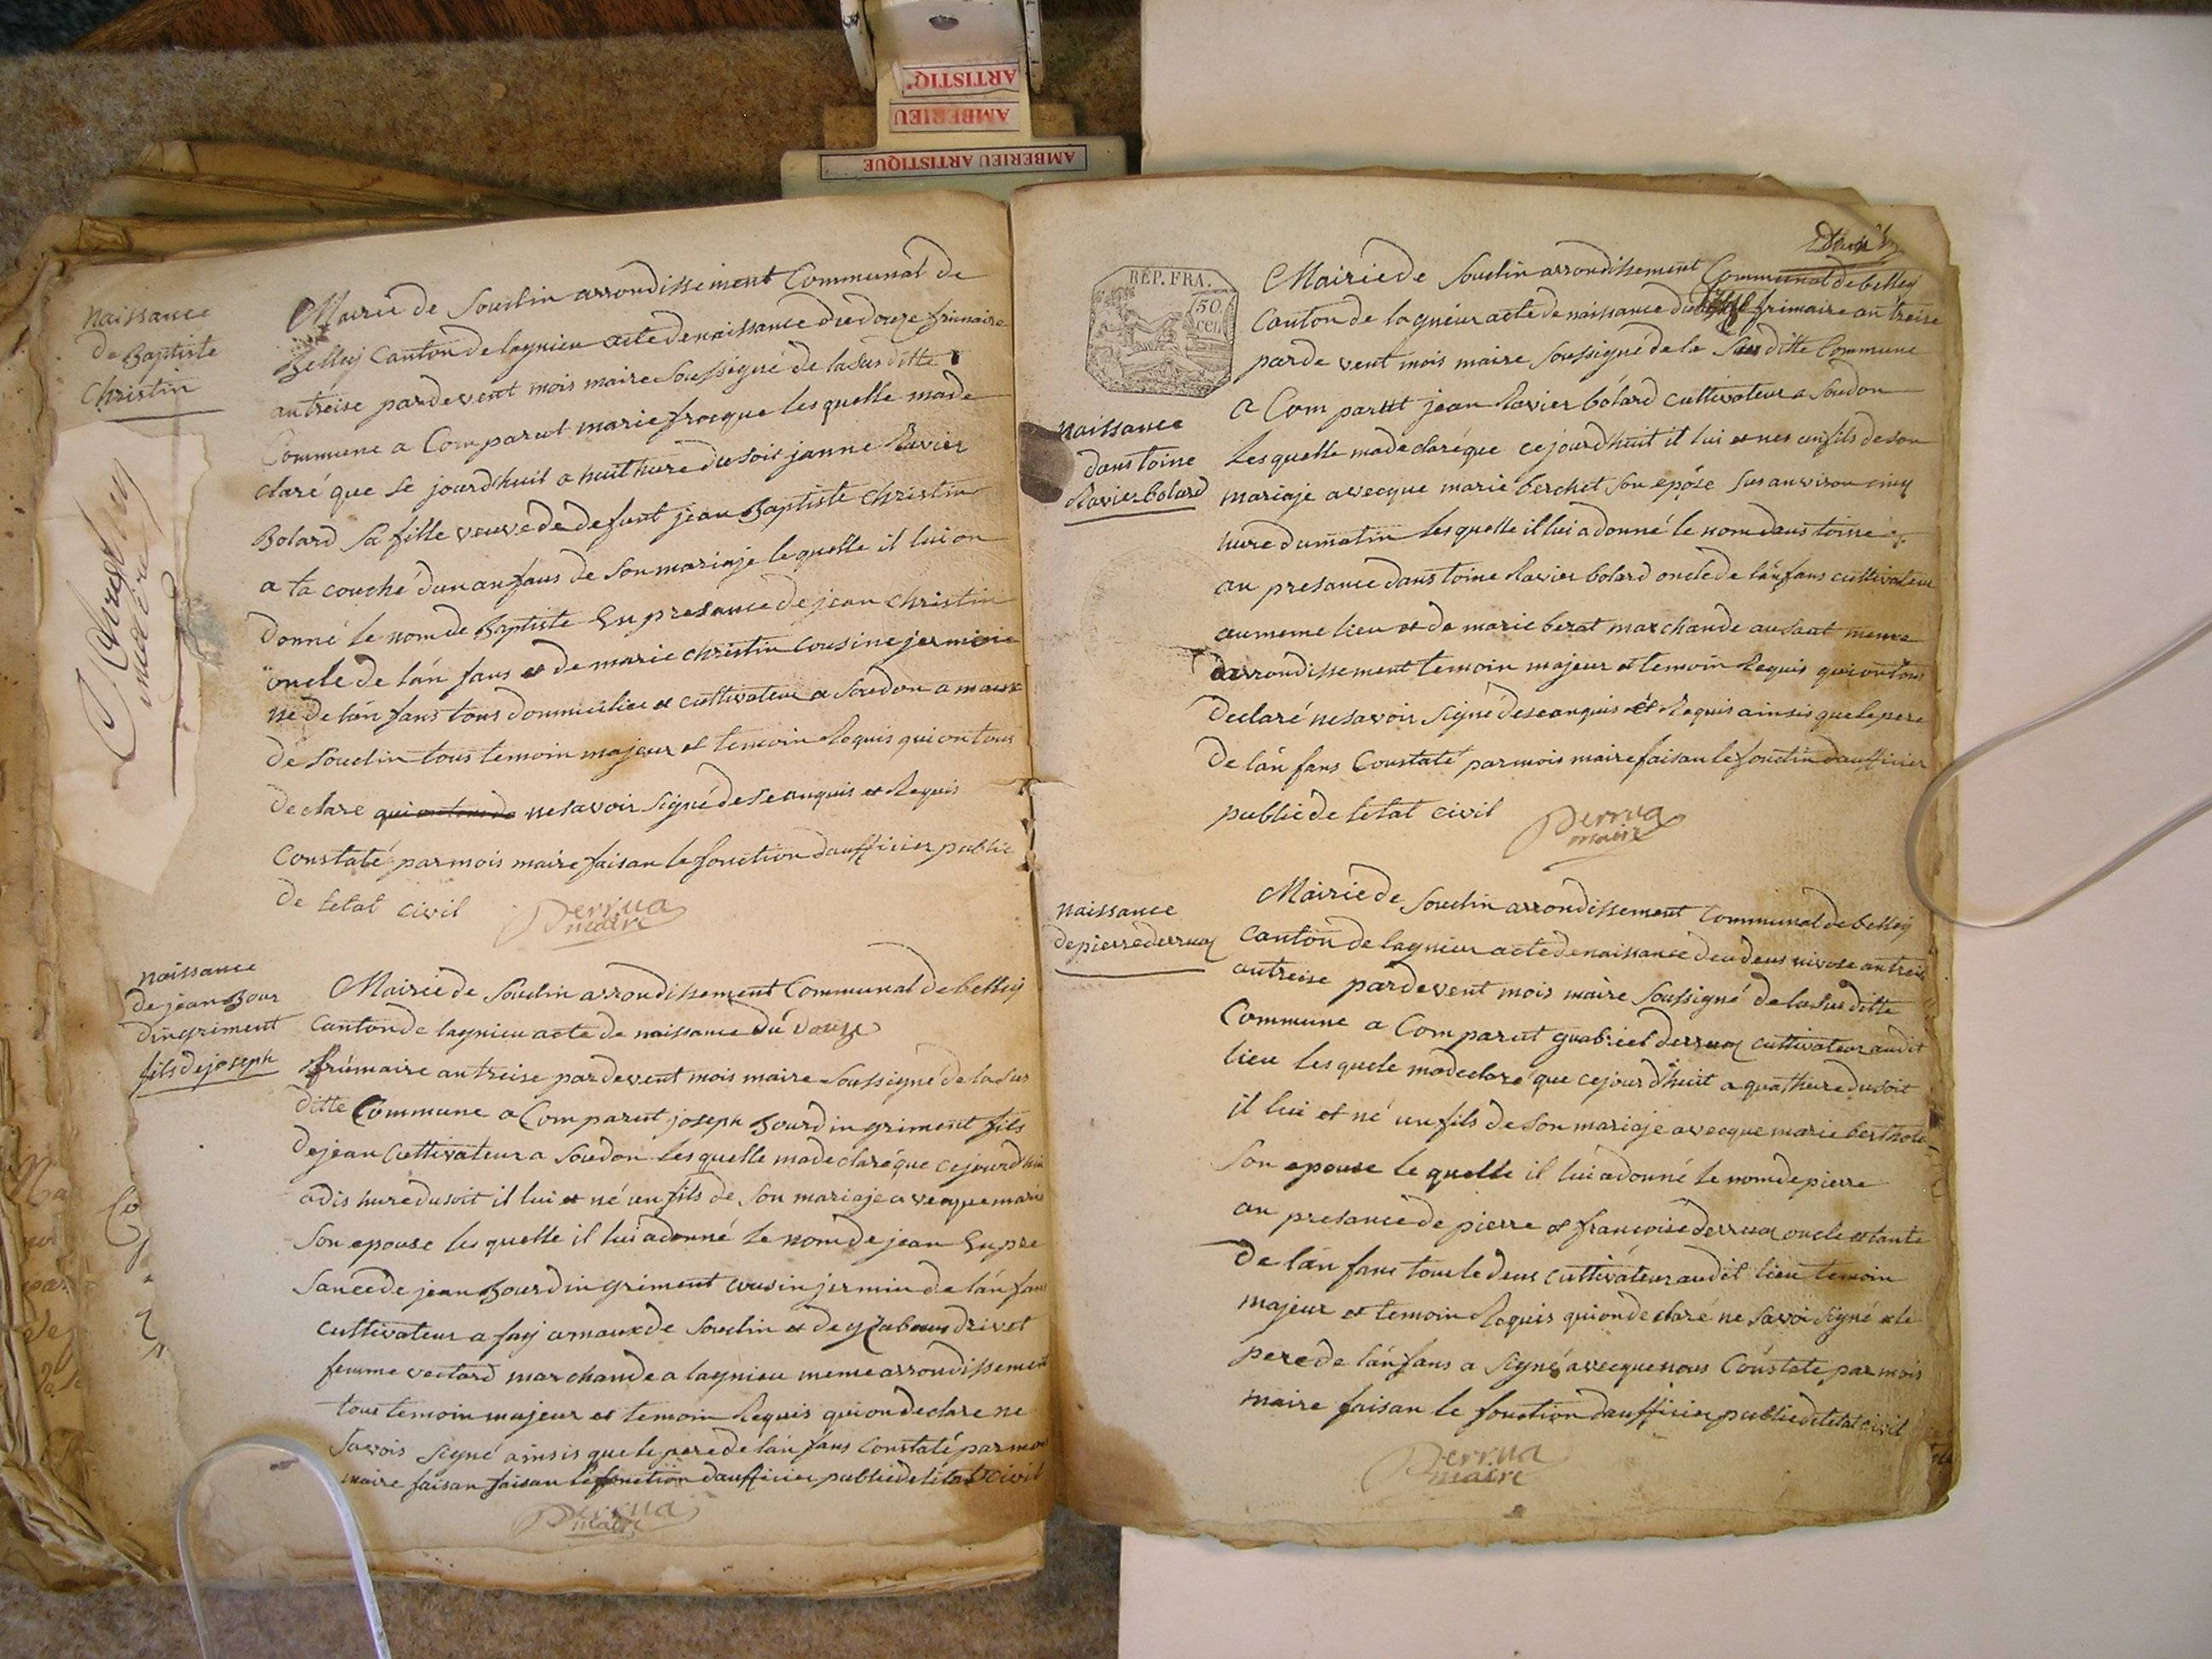 ARTISTIQ
AMBERIEU
AMBERIEU ARTISTIQUE
naissance
de Baptiste
Christin
Mairie de Soudin arrondissement Communal de
Belley Canton de lagnieu acte de naissance du douze frimaire
an treise pardevent mois maire Soussigné de la Sus ditte
Commune a Comparut marie frocque les quelle ma de
claré que se jourdhuil a huit hure du soir janne Ravier
Bolard Sa fille veuve de defunt jean Baptiste Christin
a ta couché dun anfans de Son mariaje le quelle il lui on
donné le nom de Baptiste En presance de jean christin
oncle de lán fans et de marie christin cousine jermaie
ne de lán fans tous doumicilie et cultivateur a Soudon a maux
de Soudin tous temoin majeur et temoin Requis qui on tous
declare qui on tous de ne savoir Signé de se anquis et Requis
Constaté par mois maire faisan le fonction daufficier public
de letat civil
Derrua
maire
naissance
de jean Bour
dingriment
fils de joseph
Mairie de Soudin arrondissement Communal de belley
Canton de lagnieu acte de naissance du douze
frumaire an treise pardevent mois maire Soussigné de la Sus
ditte Commune a Comparut joseph Bourdin griment fils
de jean Cultivateur a Soudon les quelle ma declaré que ce jourdhui
a dis hure du soit il lui et né un fils de Son mariaje avecque marie
Son epouse les quelle il lui a donné le nom de jean En pre
sance de jean Bourdin griment cousin jermin de lán fans
cultivateur a fay amaux de Soudin et de drivet
femme vectard marchande a lagnieu meme arrondissement
tous temoin majeur et temoin Requis qui on declare ne
Savois signé ainsis que le pere de lán fans Constaté par moi
maire faisan faisan le fonction daufficier public de létat civil
Derrua
maire
REP. FRA.
50
cen
Mairie de Soudin arrondissement Communal de belley
Canton de lagnieur acte de naissance du frimaire an treise
parde vent mois maire Soussigné de la Sus ditte Commune
naissance
dans toine
Ravier bolard
a Com parut jean Ravier bolard cultivateur a Soudon
Les quelle ma declaré que ce jourdhuit il lui et nes un fils de son
mariaje avecque marie berchet Son epóse Sus anviron cinq
hure du matin les quelle il lui a donné le nom dans toine
an presance dans toine Ravier bolard oncle de lán fans cultivateur
au meme lieu et de marie berat marchande au Saut meme
darrondissement temoin majeur et temoin Requis qui on tous
declaré ne savoir Signé de se anquis et Requis ainsis que le pere
de lán fans Constaté par mois maire faisan le fonctin daufficier
public de letat civil
Derrua
maire
naissance
de pierre derrua
Mairie de Soudin arrondissement Communal de belley
Canton de lagnieu acte de naissance deu deus nivose an treis
an treise par devent mois maire Soussigné de la Sus ditte
Commune a Com parut guabriel derrua cultivateur au dit
lieu les quele ma declaré que ce jour dhuit a quat hure du soit
il lui et né un fils de Son mariaje avecque marie berthole
Son epouse le quelle il lui a donné le nom de pierre
an presance de pierre et francoise derrua oncle et tante
de lán fans tous le deus cultivateur au dit lieu temoin
majeur et temoin Requis qui on declaré ne Savoi Signé et le
pere de lán fans a Signé avecque nous Constate par mois
maire faisan le fonction daufficier public de letat civil
Derrua
maire